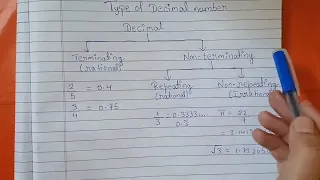 Type of Decimal number
Decimal
Terminating
(rational)
Non-terminating
2/5 = 0.4
3/4 = 0.75
Repeating
(rational)
1/3 = 0.3333...
0.3
Non-repeating
(Irrational)
π = 22/7
= 3.141
√3 =